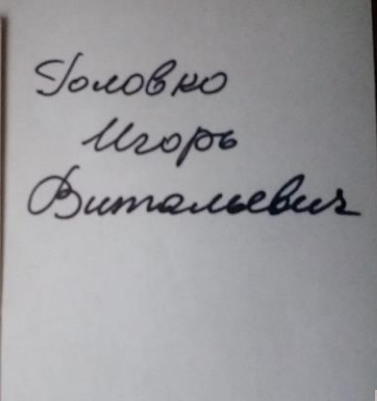 Головко
Игорь
Витальевич